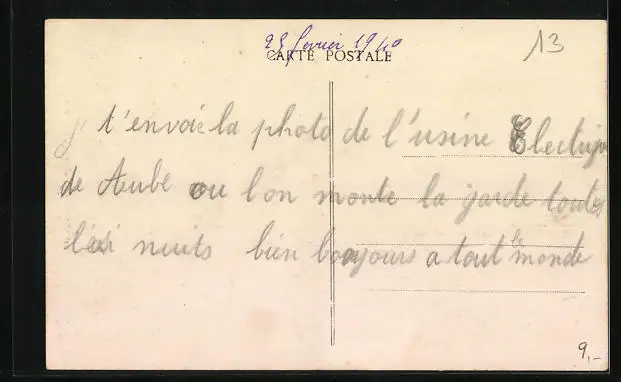 25 fevrier 1940
13
CARTE POSTALE
je t'envoie la photo de l'usine Electrique
de Aube ou lon monte la garde toutes
les nuits bien bonjours a tout le monde
9,-